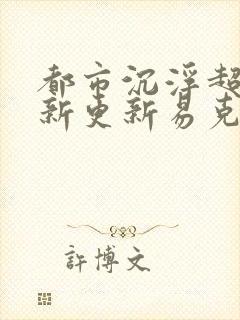 都市沉浮超
新更新易克
許博文